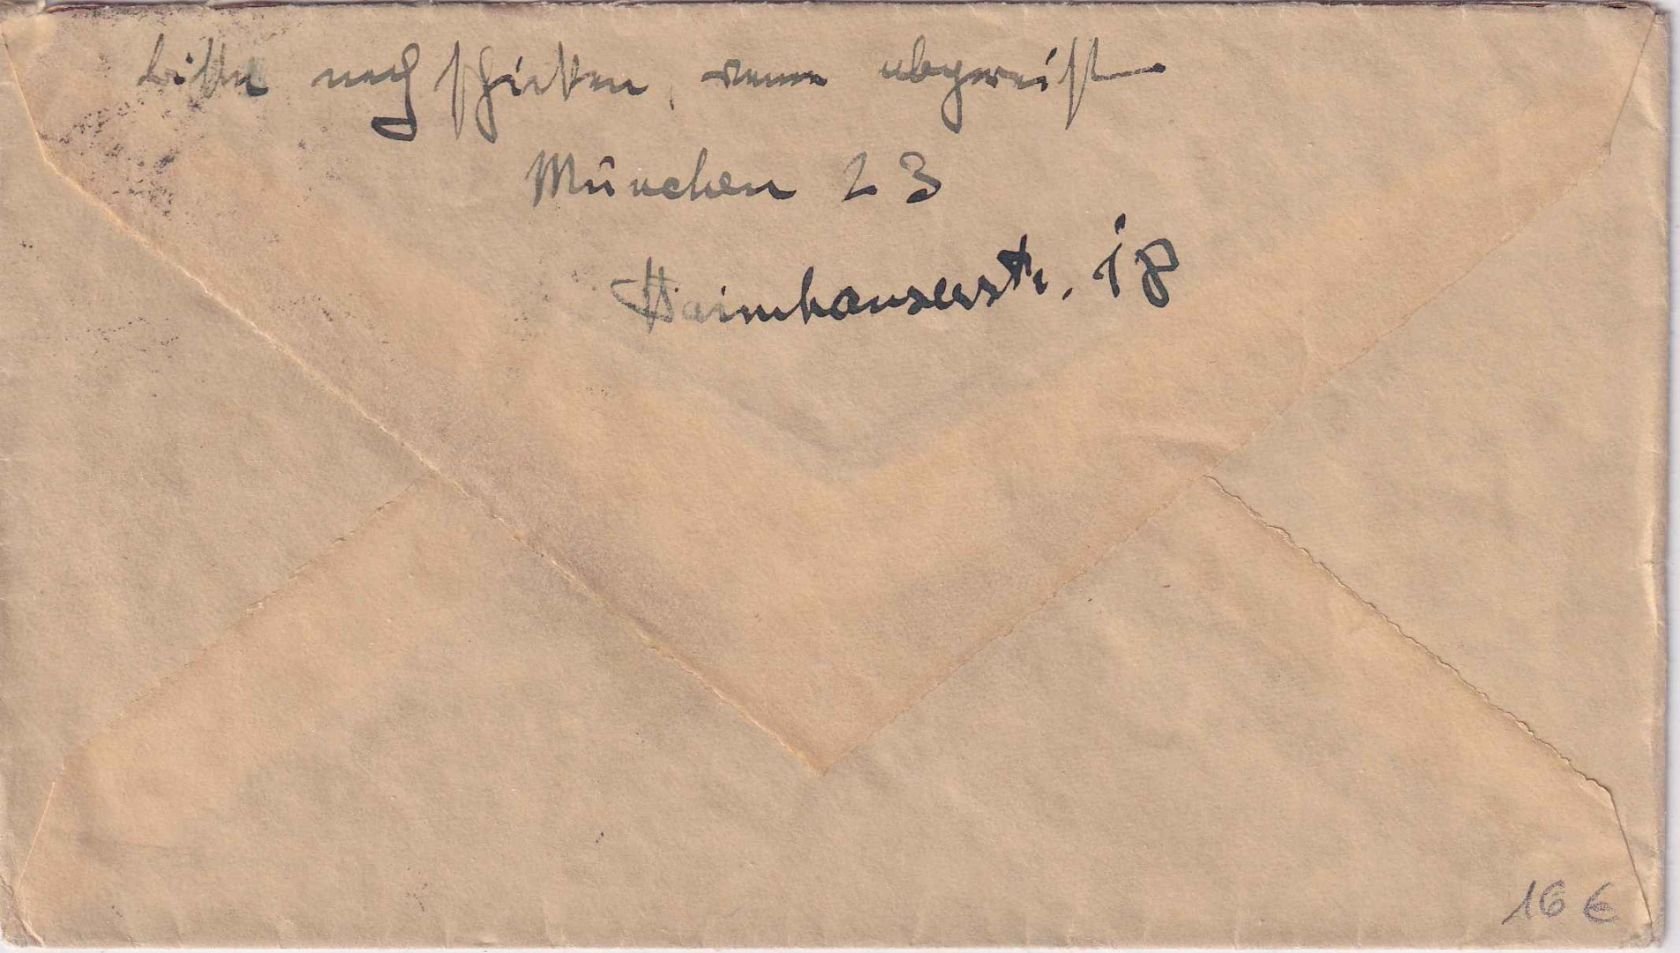 bitte nachschicken, wenn abgereist
München 23
Haimhauserstr. 18
16 €